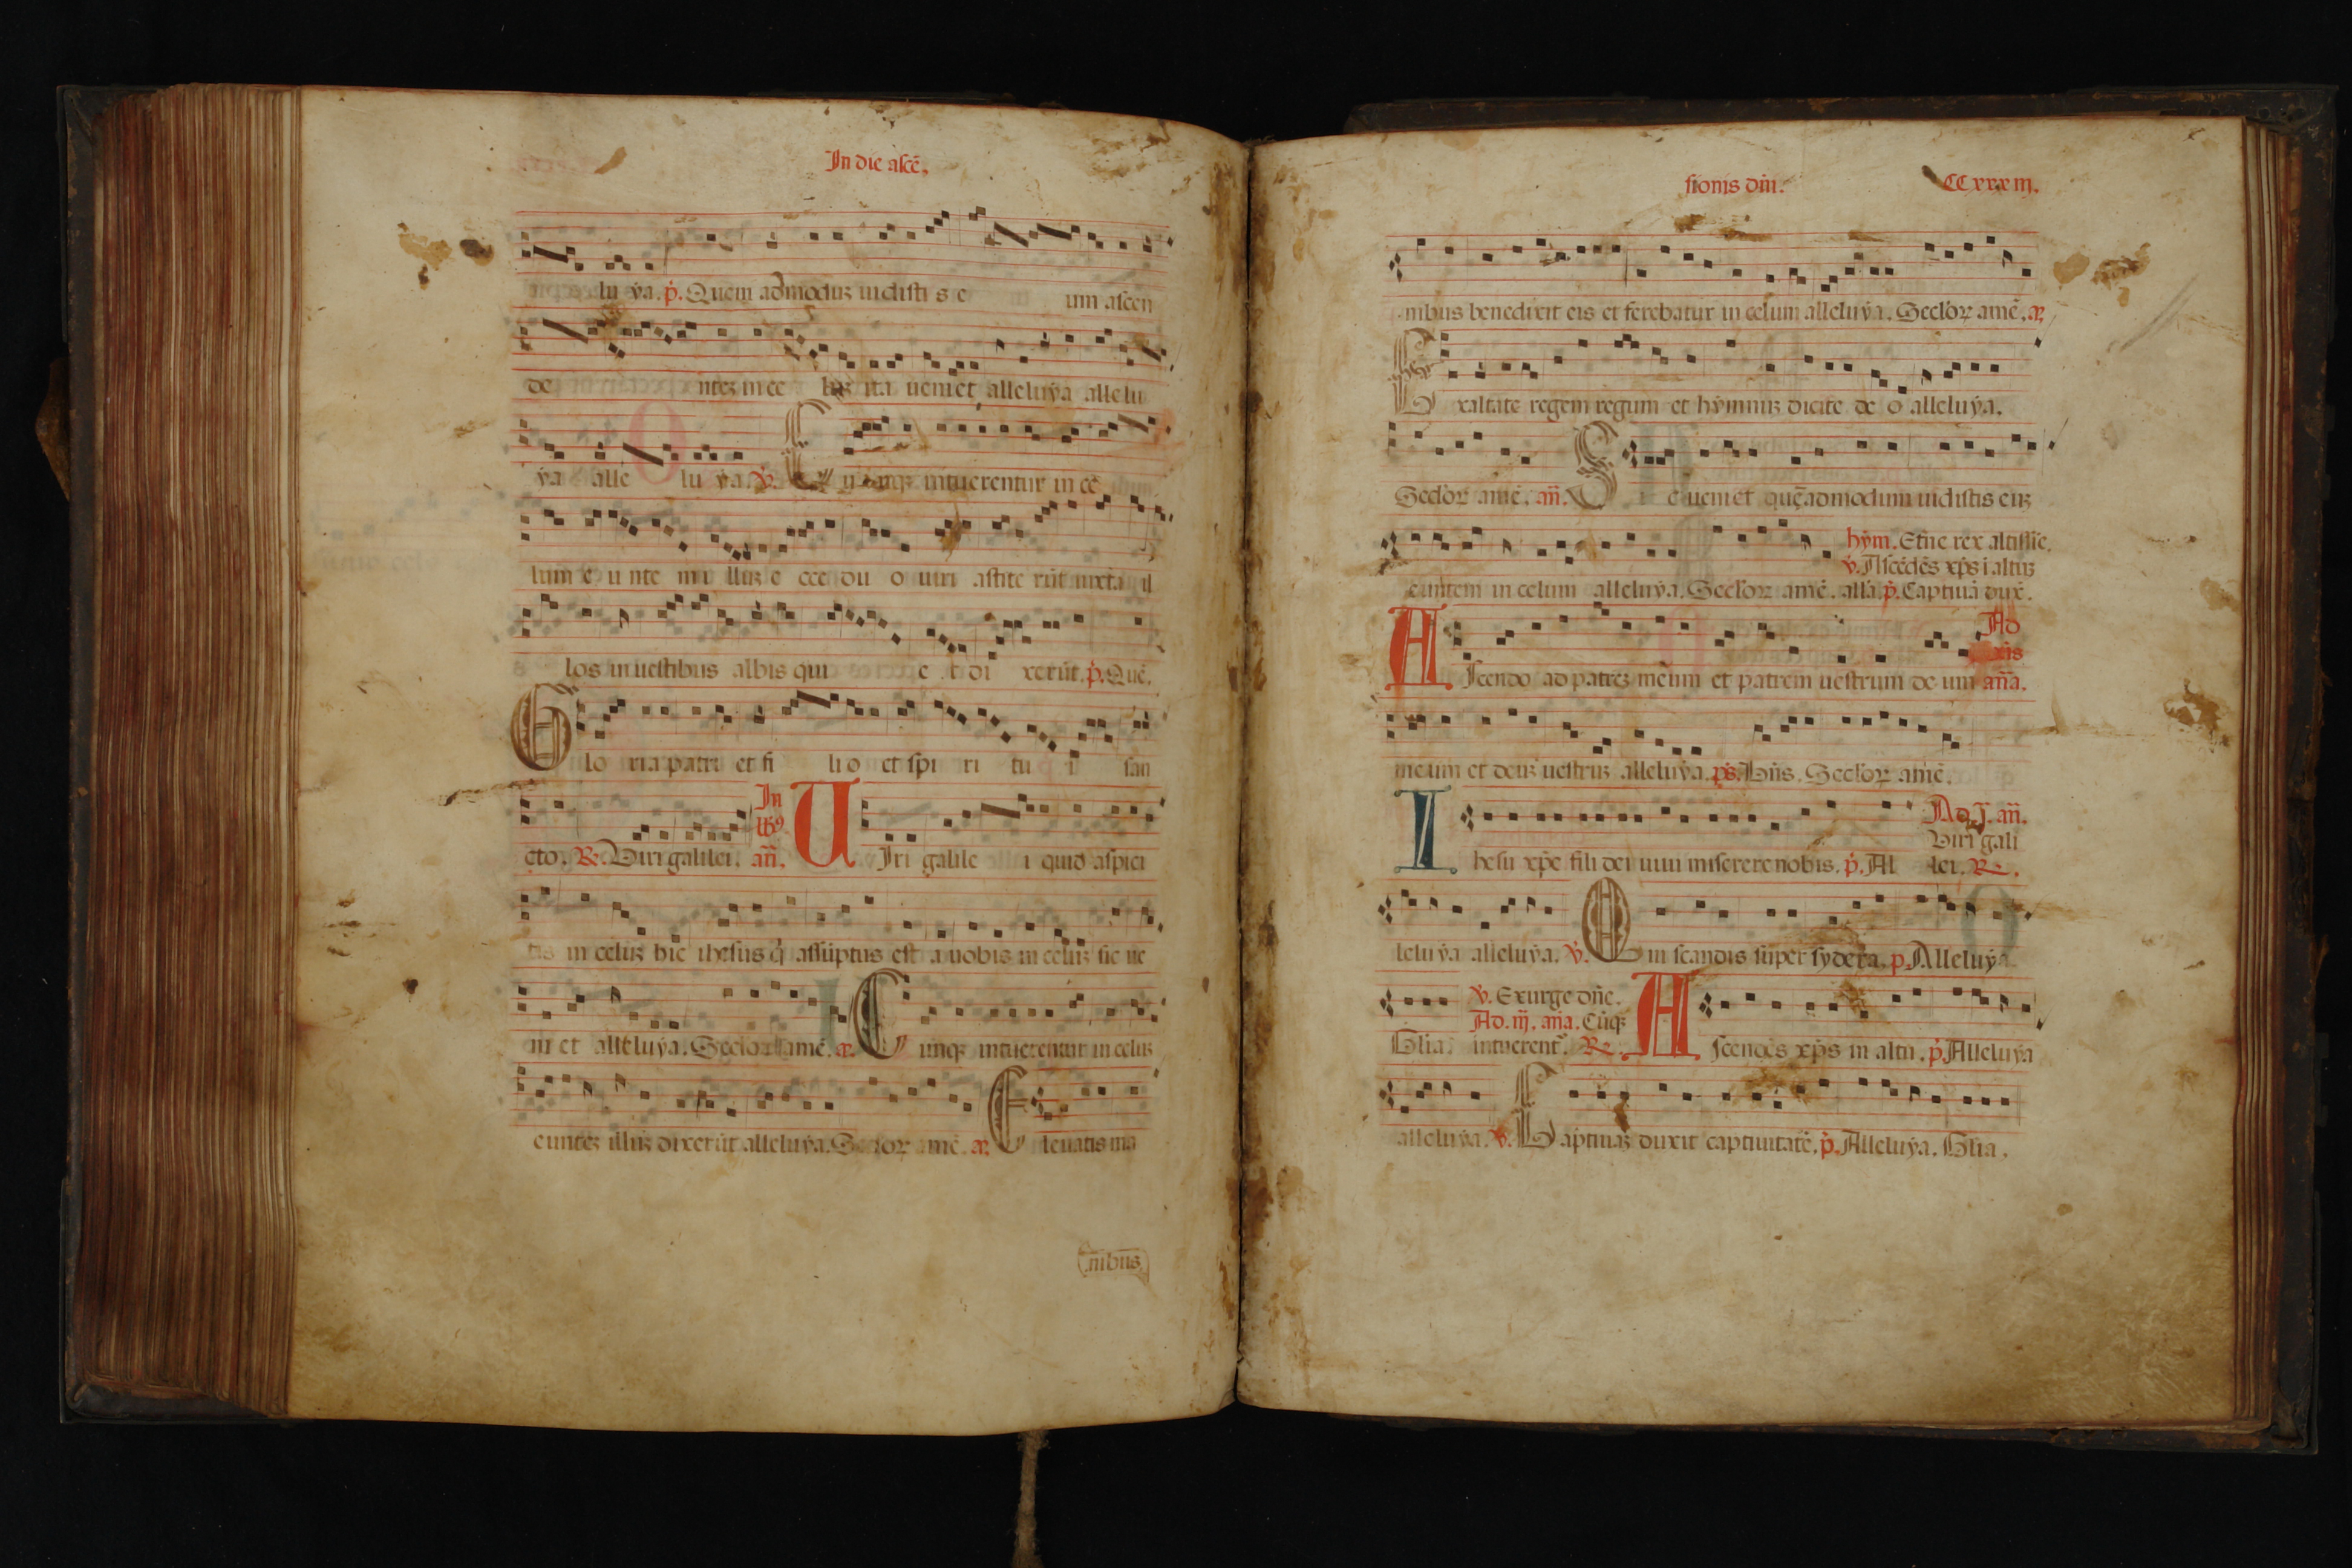 In die ascē.
lu ya. p̄. Quem admoduz uidisti s e um ascen
de ntez in ce luz ita ueniet alleluya allelu
ya alle lu ya. v̄. C unqz intuerentur in ce
lum e u nte m i lluz e cce du o uiri astite rūt iuxta il
los in uestibus albis qui e t di xerūt. p̄. Quē.
G lo ria patri et fi li o et spi ri tu i san
cto. R. Uiri galilei. In lb9 añ. U Iri galile i quid aspici
tis in celuz hic ihesus q̄ assūptus est a uobis in celuz sic ue
ni et alleluya. Seclor amē. a. C unqz intuerentur in celuz
euntez illuz dixerūt alleluya. Seclor amē. a. E leuatis ma
nibus
sionis dn̄i. CCxxxiij.
nibus benedixit eis et ferebatur in celum alleluya. Seclor amē. a.
E xaltate regem regum et hymnuz dicite de o alleluya.
Seclor amē. añ. S i c ueniet quēadmodum uidistis euz
hȳm. Etn̄e rex altissīe.
v̄. Ascēdēs xp̄s ī altuz
euntem in celum alleluya. Seclor amē. allā. p̄. Captiuā dux̄.
Ad
A scendo ad patrez meum et patrem uestrum de um an̄a.
meum et deuz uestruz alleluya. ps̄. Dn̄s. Seclor amē.
Ad. j. añ.
Uiri gali
I hesu xp̄e fili dei uiui miserere nobis. p̄. Al lei. R.
leluya alleluya. v̄. Q ui scandis super sydera. p̄. Alleluya
v̄. Exurge dn̄e.
Ad. iij. an̄a. Cūqz
Glia. intuerent. R. A scendēs xp̄s in altu. p̄. Alleluya
alleluya. v̄. C aptiuaz duxit captiuitatē. p̄. Alleluya. Glia.